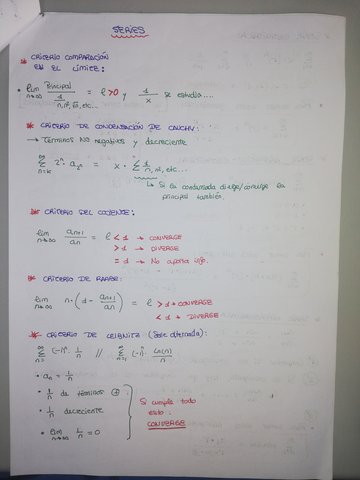 SERIES
* CRITERIO COMPARACIÓN
EN EL LÍMITE:
• lim n→∞ Principal / (1/n, n², √n, etc...) = l > 0 y 1/x se estudia....
* CRITERIO DE CONDENSACIÓN DE CAUCHY:
→ Términos NO negativos y decreciente
∞ Σ n=k 2ⁿ · a₂ⁿ = x · Σ 1/n, n², etc...
↳ Si la condensada diverge/converge la
principal también.
* CRITERIO DEL COCIENTE:
lim n→∞ aₙ₊₁/aₙ = l < 1 → CONVERGE
> 1 → DIVERGE
= 1 → No aporta info.
* CRITERIO DE RAABE:
lim n→∞ n · (1 - aₙ₊₁/aₙ) = l > 1 → CONVERGE
< 1 → DIVERGE
* CRITERIO DE LEIBNITZ (Serie alternada):
∞ Σ n=1 (-1)ⁿ · 1/n // ∞ Σ n=1 (-1)ⁿ · Ln(n)/n
• aₙ = 1/n
• 1/n de términos ⊕
• 1/n decreciente
• lim n→∞ 1/n = 0
Si cumple todo
esto:
CONVERGE